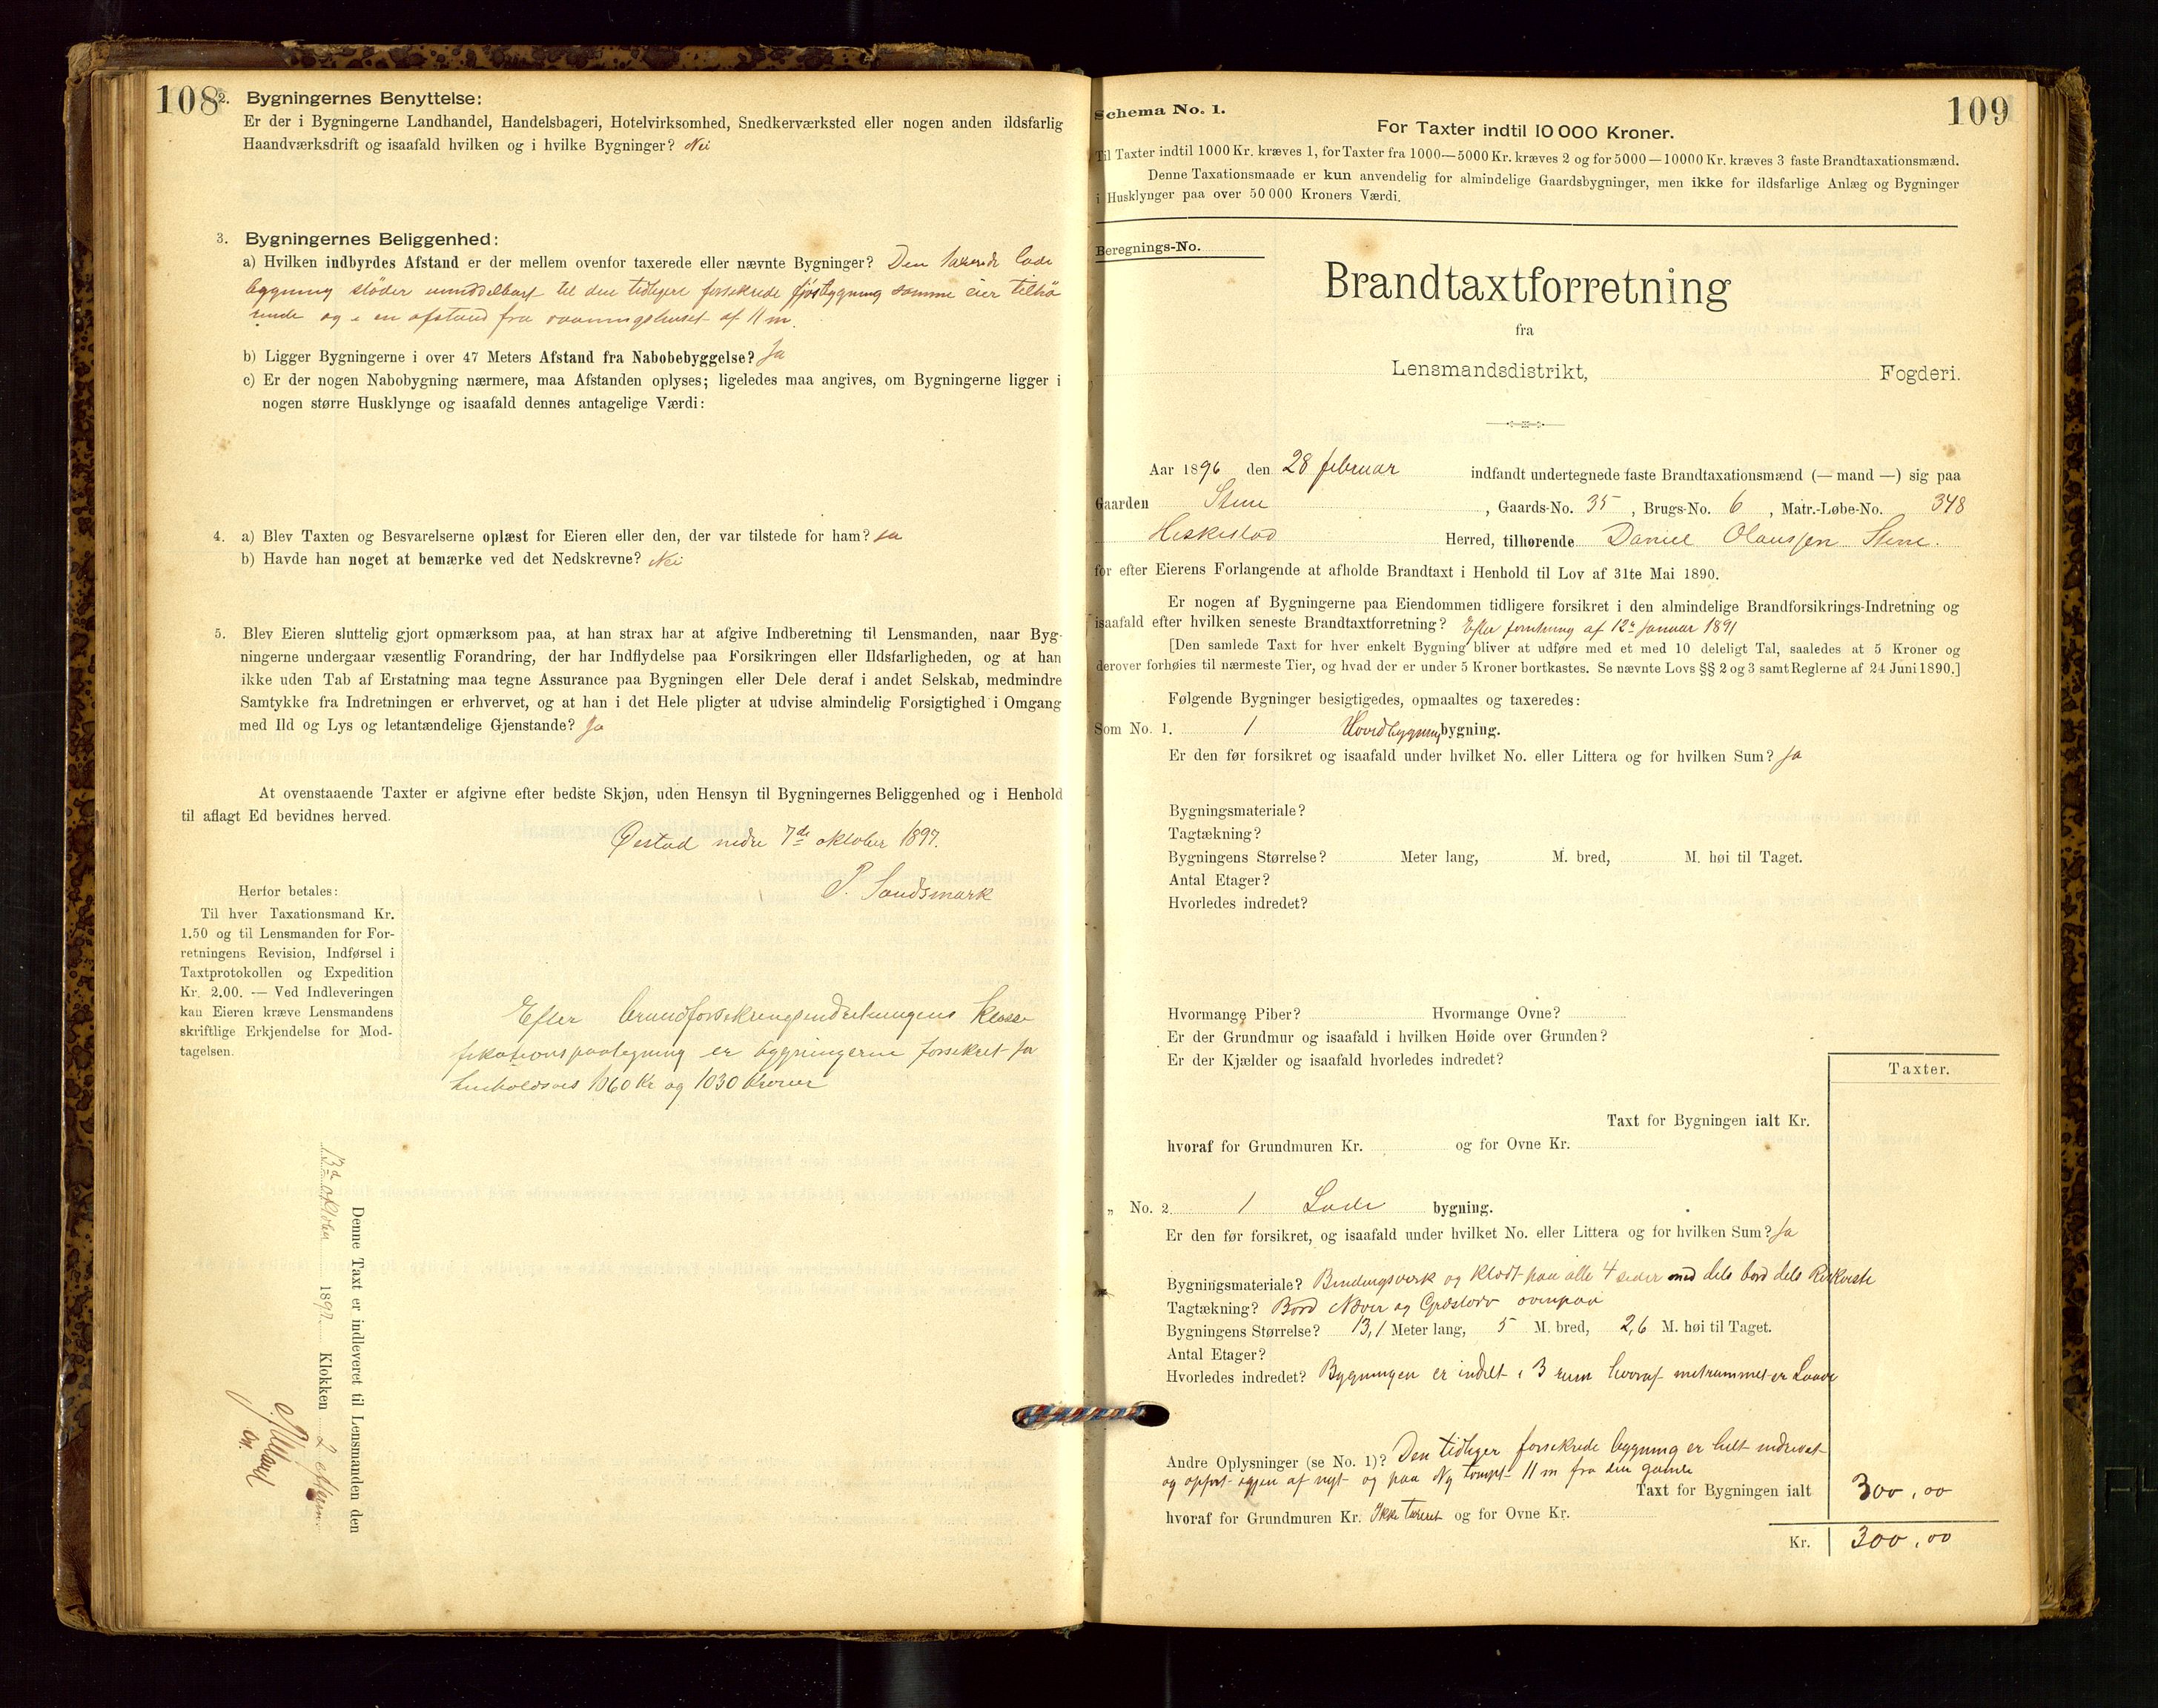 108
2. Bygningernes Benyttelse:
Er der i Bygningerne Landhandel, Handelsbageri, Hotelvirksomhed, Snedkerværksted eller nogen anden ildsfarlig
Haandværksdrift og isaafald hvilken og i hvilke Bygninger? Nei
3. Bygningernes Beliggenhed:
a) Hvilken indbyrdes Afstand er der mellem ovenfor taxerede eller nævnte Bygninger? Den taxerede lade
bygning støder umiddelbart til den tidligere forsikrede fjøsbygning samme eier tilhø
rende og i en afstand fra vaaningshuset af 11 m.
b) Ligger Bygningerne i over 47 Meters Afstand fra Nabobebyggelse? Ja
c) Er der nogen Nabobygning nærmere, maa Afstanden oplyses; ligeledes maa angives, om Bygningerne ligger i
nogen større Husklynge og isaafald dennes antagelige Værdi:
4. a) Blev Taxten og Besvarelserne oplæst for Eieren eller den, der var tilstede for ham? Ja
b) Havde han noget at bemærke ved det Nedskrevne? Nei
5. Blev Eieren sluttelig gjort opmærksom paa, at han strax har at afgive Indberetning til Lensmanden, naar Byg-
ningerne undergaar væsentlig Forandring, der har Indflydelse paa Forsikringen eller Ildsfarligheden, og at han
ikke uden Tab af Erstatning maa tegne Assurance paa Bygningen eller Dele deraf i andet Selskab, medmindre
Samtykke fra Indretningen er erhvervet, og at han i det Hele pligter at udvise almindelig Forsigtighed i Omgang
med Ild og Lys og letantændelige Gjenstande? Ja
At ovenstaaende Taxter er afgivne efter bedste Skjøn, uden Hensyn til Bygningernes Beliggenhed og i Henhold
til aflagt Ed bevidnes herved.
Øestad nedre 7de oktober 1897.
P. Sandsmark
Herfor betales:
Til hver Taxationsmand Kr.
1.50 og til Lensmanden for For-
retningens Revision, Indførsel i
Taxtprotokollen og Expedition
Kr. 2.00. — Ved Indleveringen
kan Eieren kræve Lensmandens
skriftlige Erkjendelse for Mod-
tagelsen.
Efter brandforsikringsindretningens Klassi
fikationspaategning er bygningerne forsikret for
henholdsvis 1060 Kr og 1030 Kroner
Denne Taxt er indleveret til Lensmanden den
13de oktober 1897. Klokken 2 efterm.
109
Schema No. 1.
For Taxter indtil 10 000 Kroner.
Til Taxter indtil 1000 Kr. kræves 1, for Taxter fra 1000—5000 Kr. kræves 2 og for 5000—10000 Kr. kræves 3 faste Brandtaxationsmænd.
Denne Taxationsmaade er kun anvendelig for almindelige Gaardsbygninger, men ikke for ildsfarlige Anlæg og Bygninger
i Husklynger paa over 50 000 Kroners Værdi.
Beregnings-No.
Brandtaxtforretning
fra
Lensmandsdistrikt, Fogderi.
Aar 1896 den 28 februar indfandt undertegnede faste Brandtaxationsmænd (— mand —) sig paa
Gaarden Stene, Gaards-No. 35, Brugs-No. 6, Matr.-Løbe-No. 348
Heskestad Herred, tilhørende Daniel Olaussen Stene.
for efter Eierens Forlangende at afholde Brandtaxt i Henhold til Lov af 31te Mai 1890.
Er nogen af Bygningerne paa Eiendommen tidligere forsikret i den almindelige Brandforsikrings-Indretning og
isaafald efter hvilken seneste Brandtaxtforretning? Efter forretning af 12te Januar 1891
[Den samlede Taxt for hver enkelt Bygning bliver at udføre med et med 10 deleligt Tal, saaledes at 5 Kroner og
derover forhøies til nærmeste Tier, og hvad der er under 5 Kroner bortkastes. Se nævnte Lovs §§ 2 og 3 samt Reglerne af 24 Juni 1890.]
Følgende Bygninger besigtigedes, opmaaltes og taxeredes:
Som No. 1. 1 Hovedbygning bygning.
Er den før forsikret og isaafald under hvilket No. eller Littera og for hvilken Sum? Ja
Bygningsmateriale?
Tagtækning?
Bygningens Størrelse? Meter lang, M. bred, M. høi til Taget.
Antal Etager?
Hvorledes indredet?
Hvormange Piber? Hvormange Ovne?
Er der Grundmur og isaafald i hvilken Høide over Grunden?
Er der Kjælder og isaafald hvorledes indredet?
Taxter.
Taxt for Bygningen ialt Kr.
hvoraf for Grundmuren Kr. og for Ovne Kr.
„ No. 2. 1 Lade bygning.
Er den før forsikret, og isaafald under hvilket No. eller Littera og for hvilken Sum? Ja
Bygningsmateriale? Bindingsverk og Klædt paa alle 4 sider med dels bord dels
Tagtækning? Bord Næver og Græstorv ovenpaa
Bygningens Størrelse? 13,1 Meter lang, 5 M. bred, 2,6 M. høi til Taget.
Antal Etager?
Hvorledes indredet? Bygningen er indelt i 3 rum hvoraf er Laave
Andre Oplysninger (se No. 1)? Den tidliger forsikrede bygning er helt nedrevet
og opført igjen af nyt og paa Ny tompt 11 m fra den gamle
Taxt for Bygningen ialt 300,00
hvoraf for Grundmuren Kr. Ikke taxeret og for Ovne Kr.
Kr. 300,00